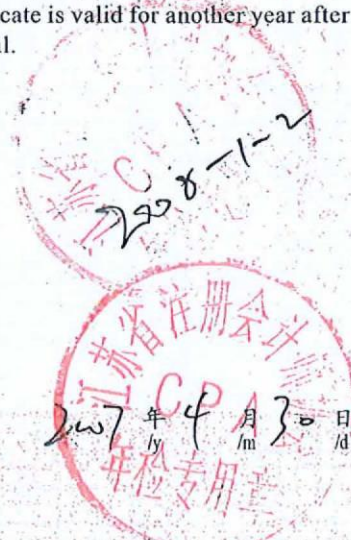 cate is valid for another year after
l.
江苏
C
2008-1-2
江苏省注册会计师
CPA
2007年4月30日
/y /m /d
年检专用章